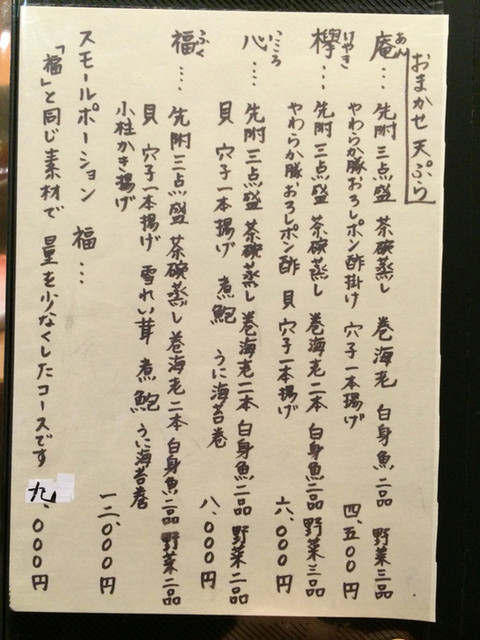 おまかせ天ぷら
あん
庵… 先附三点盛 茶碗蒸し 巻海老 白身魚二品 野菜三品
やわらか豚おろしポン酢掛け 穴子一本揚げ 四、五〇〇円
けやき
欅… 先附三点盛 茶碗蒸し 巻海老二本 白身魚二品 野菜三品
やわらか豚おろしポン酢 貝 穴子一本揚げ 六、〇〇〇円
こころ
心… 先附三点盛 茶碗蒸し 巻海老二本 白身魚二品 野菜二品
貝 穴子一本揚げ 煮鮑 うに海苔巻 八、〇〇〇円
ふく
福… 先附三点盛 茶碗蒸し 巻海老二本 白身魚二品 野菜二品
貝 穴子一本揚げ 雪れい茸 煮鮑 うに海苔巻
小柱かき揚げ 一二、〇〇〇円
スモールポーション 福…
「福」と同じ素材で 量を少なくしたコースです 九、〇〇〇円